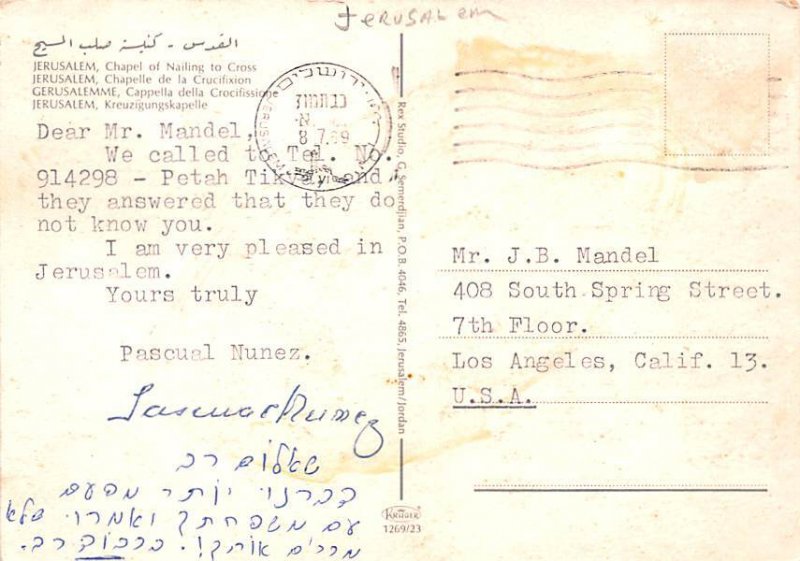 JERUSALEM
القدس - كنيسة صلب المسيح
JERUSALEM, Chapel of Nailing to Cross
JERUSALEM, Chapelle de la Crucifixion
GERUSALEMME, Cappella della Crocifissione
JERUSALEM, Kreuzigungskapelle
ירושלים
JERUSALEM
8.7.69
Dear Mr. Mandel,
We called to Tel. No.
914298 - Petah Tikva, and
they answered that they do
not know you.
I am very pleased in
Jerusalem.
Yours truly
Pascual Nunez.
Pascual Nunez
שאלום רב
דברנו יותר מפעם
עם משפחתך ואמרו שלא
מכרים אותך! בכבוד רב.
Rex Studio, G. Semerdjian, P.O.B. 4046, Tel. 4865, Jerusalem/Jordan
KRÜGER
1269/23
Mr. J.B. Mandel
408 South Spring Street.
7th Floor.
Los Angeles, Calif. 13.
U.S.A.